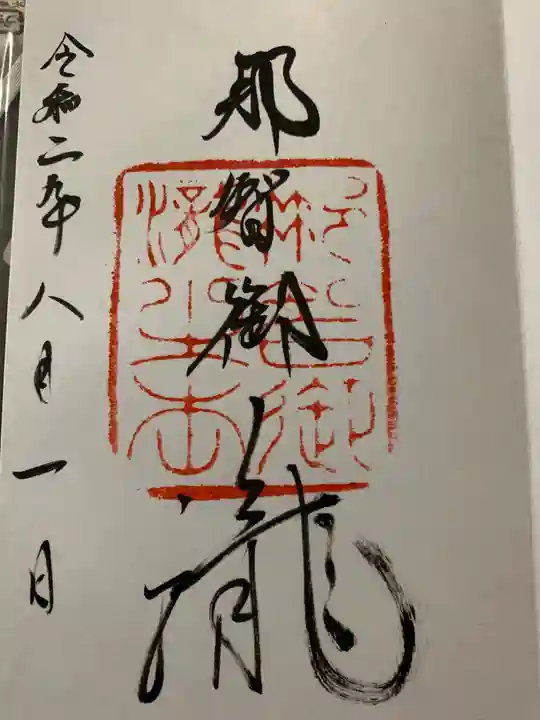 那智御瀧
令和二年八月一日